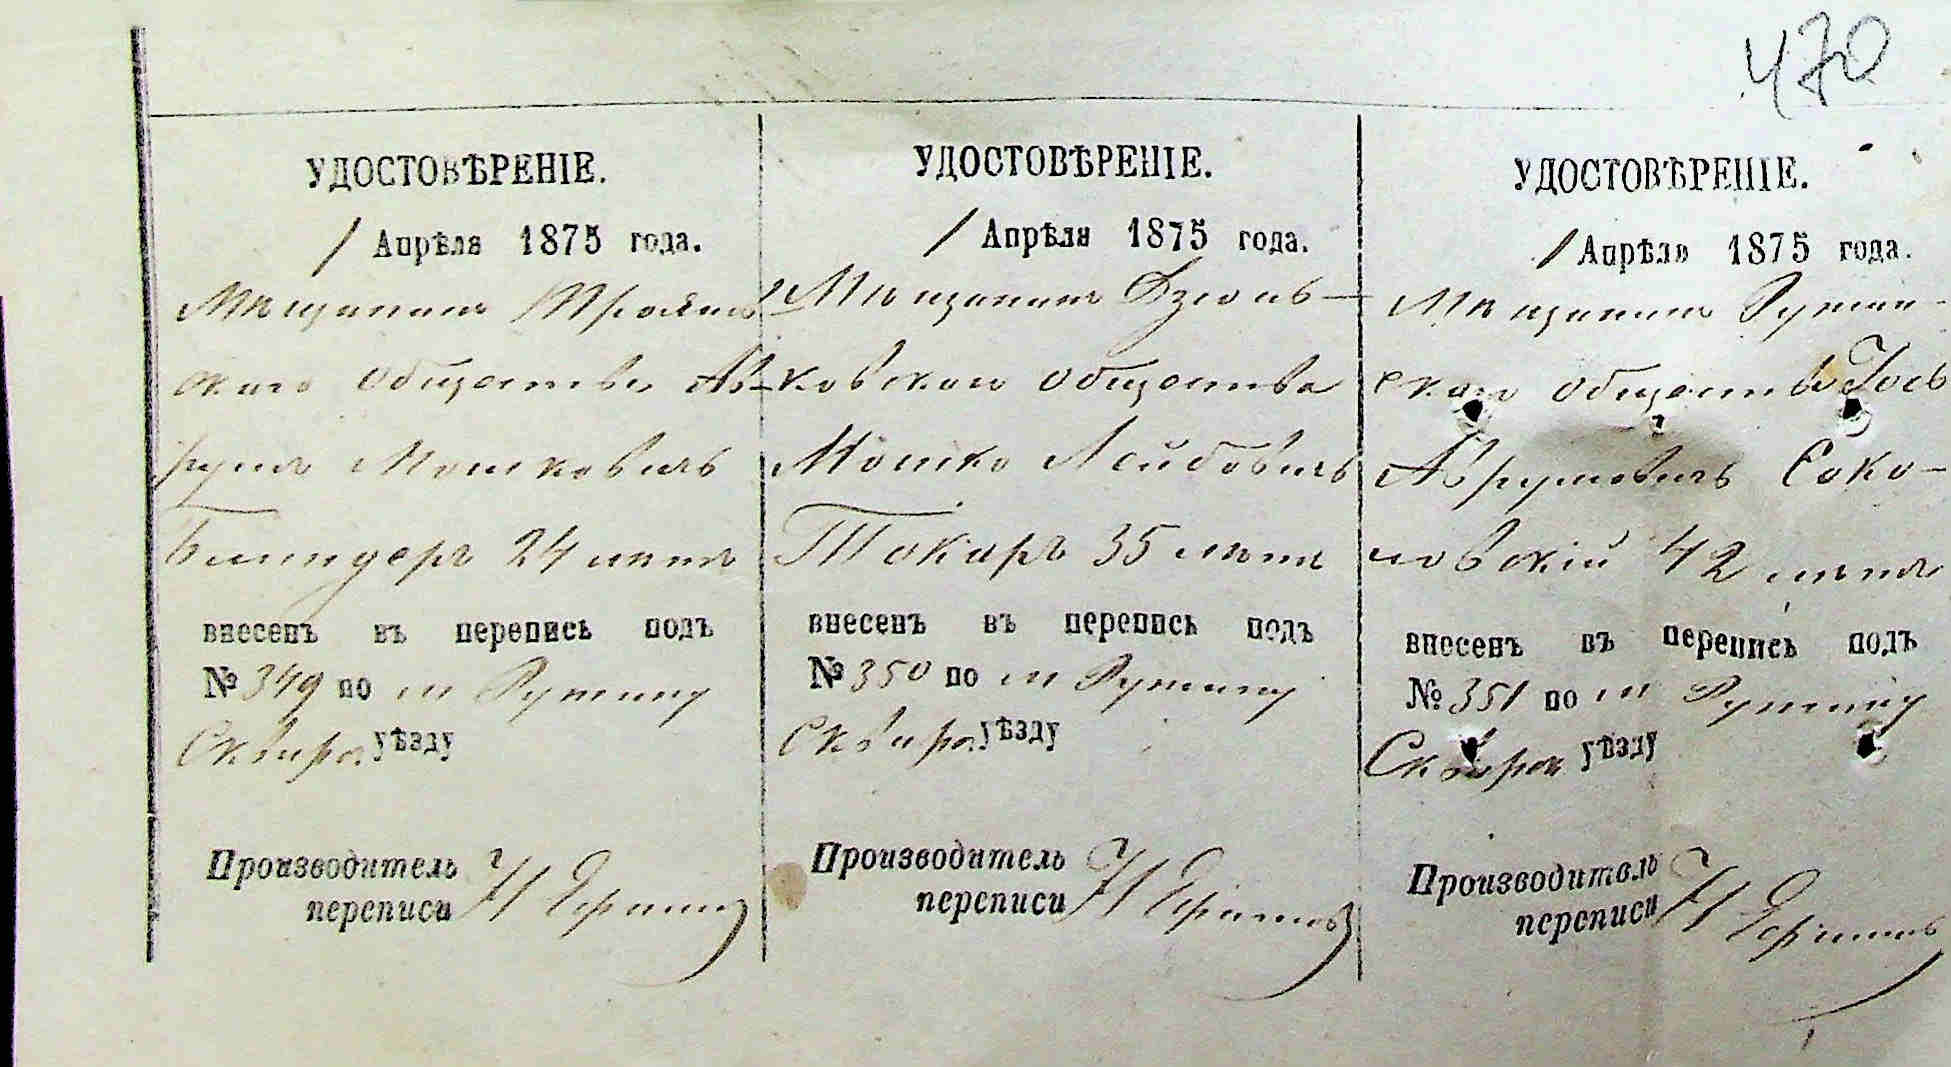 470
УДОСТОВѢРЕНІЕ.
1 Апрѣля 1875 года.
Мѣщанинъ Троянов
скаго общества Ав-
румъ Мошковичъ
Биндеръ 24 лѣтъ
внесенъ въ перепись подъ
№ 349 по м Ружину
Сквирск. уѣзду
Производитель
переписи Н
УДОСТОВѢРЕНІЕ.
1 Апрѣля 1875 года.
Мѣщанинъ Дзюнь-
ковскаго общества
Мошко Лейбовичъ
Токарь 35 лѣтъ
внесенъ въ перепись подъ
№ 350 по м Ружину
Сквирск. уѣзду
Производитель
переписи Н
УДОСТОВѢРЕНІЕ.
1 Апрѣля 1875 года.
Мѣщанинъ Ружин-
скаго общества Іось
Аврумовичъ Соко-
ловскій 42 лѣтъ
внесенъ въ перепись подъ
№ 351 по м Ружину
Сквирск уѣзду
Производитель
переписи Н